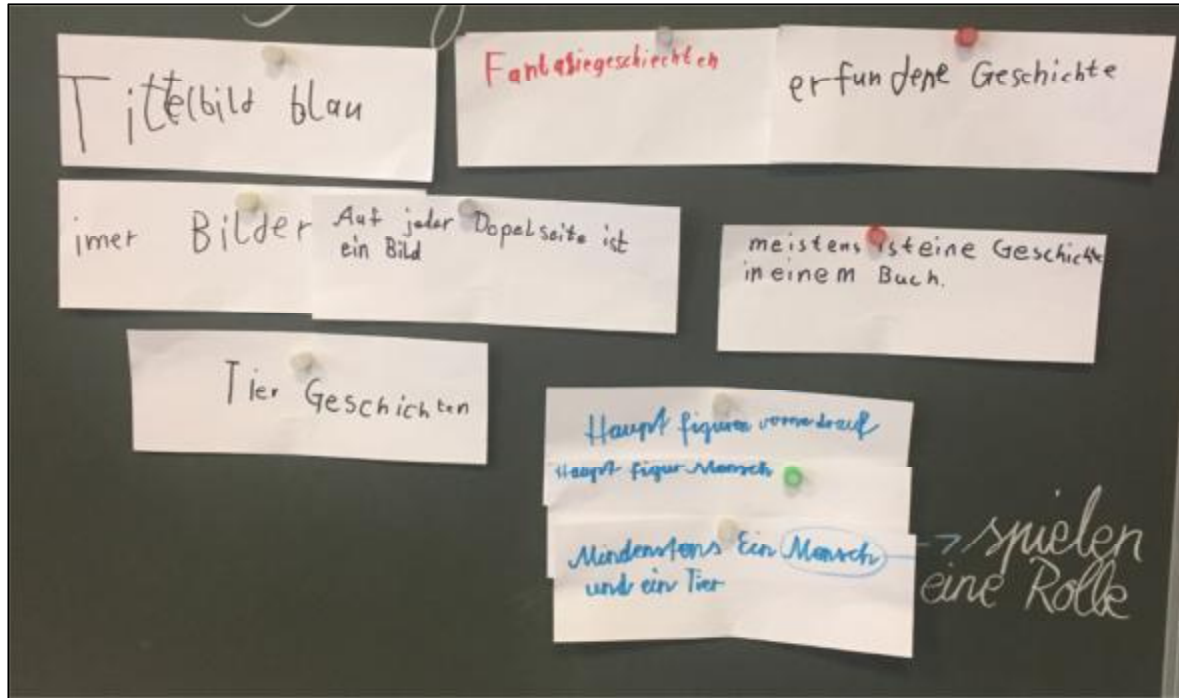 Tittelbild blau
Fantasiegeschiechten
erfundene Geschichte
imer Bilder
Auf jeder Dopelseite ist
ein Bild
meistens ist eine Geschichte
in einem Buch.
Tier Geschichten
Haupt figuren vorne drauf
Haupt figur Mensch
Mindenstens Ein Mensch
und ein Tier
spielen
eine Rolle